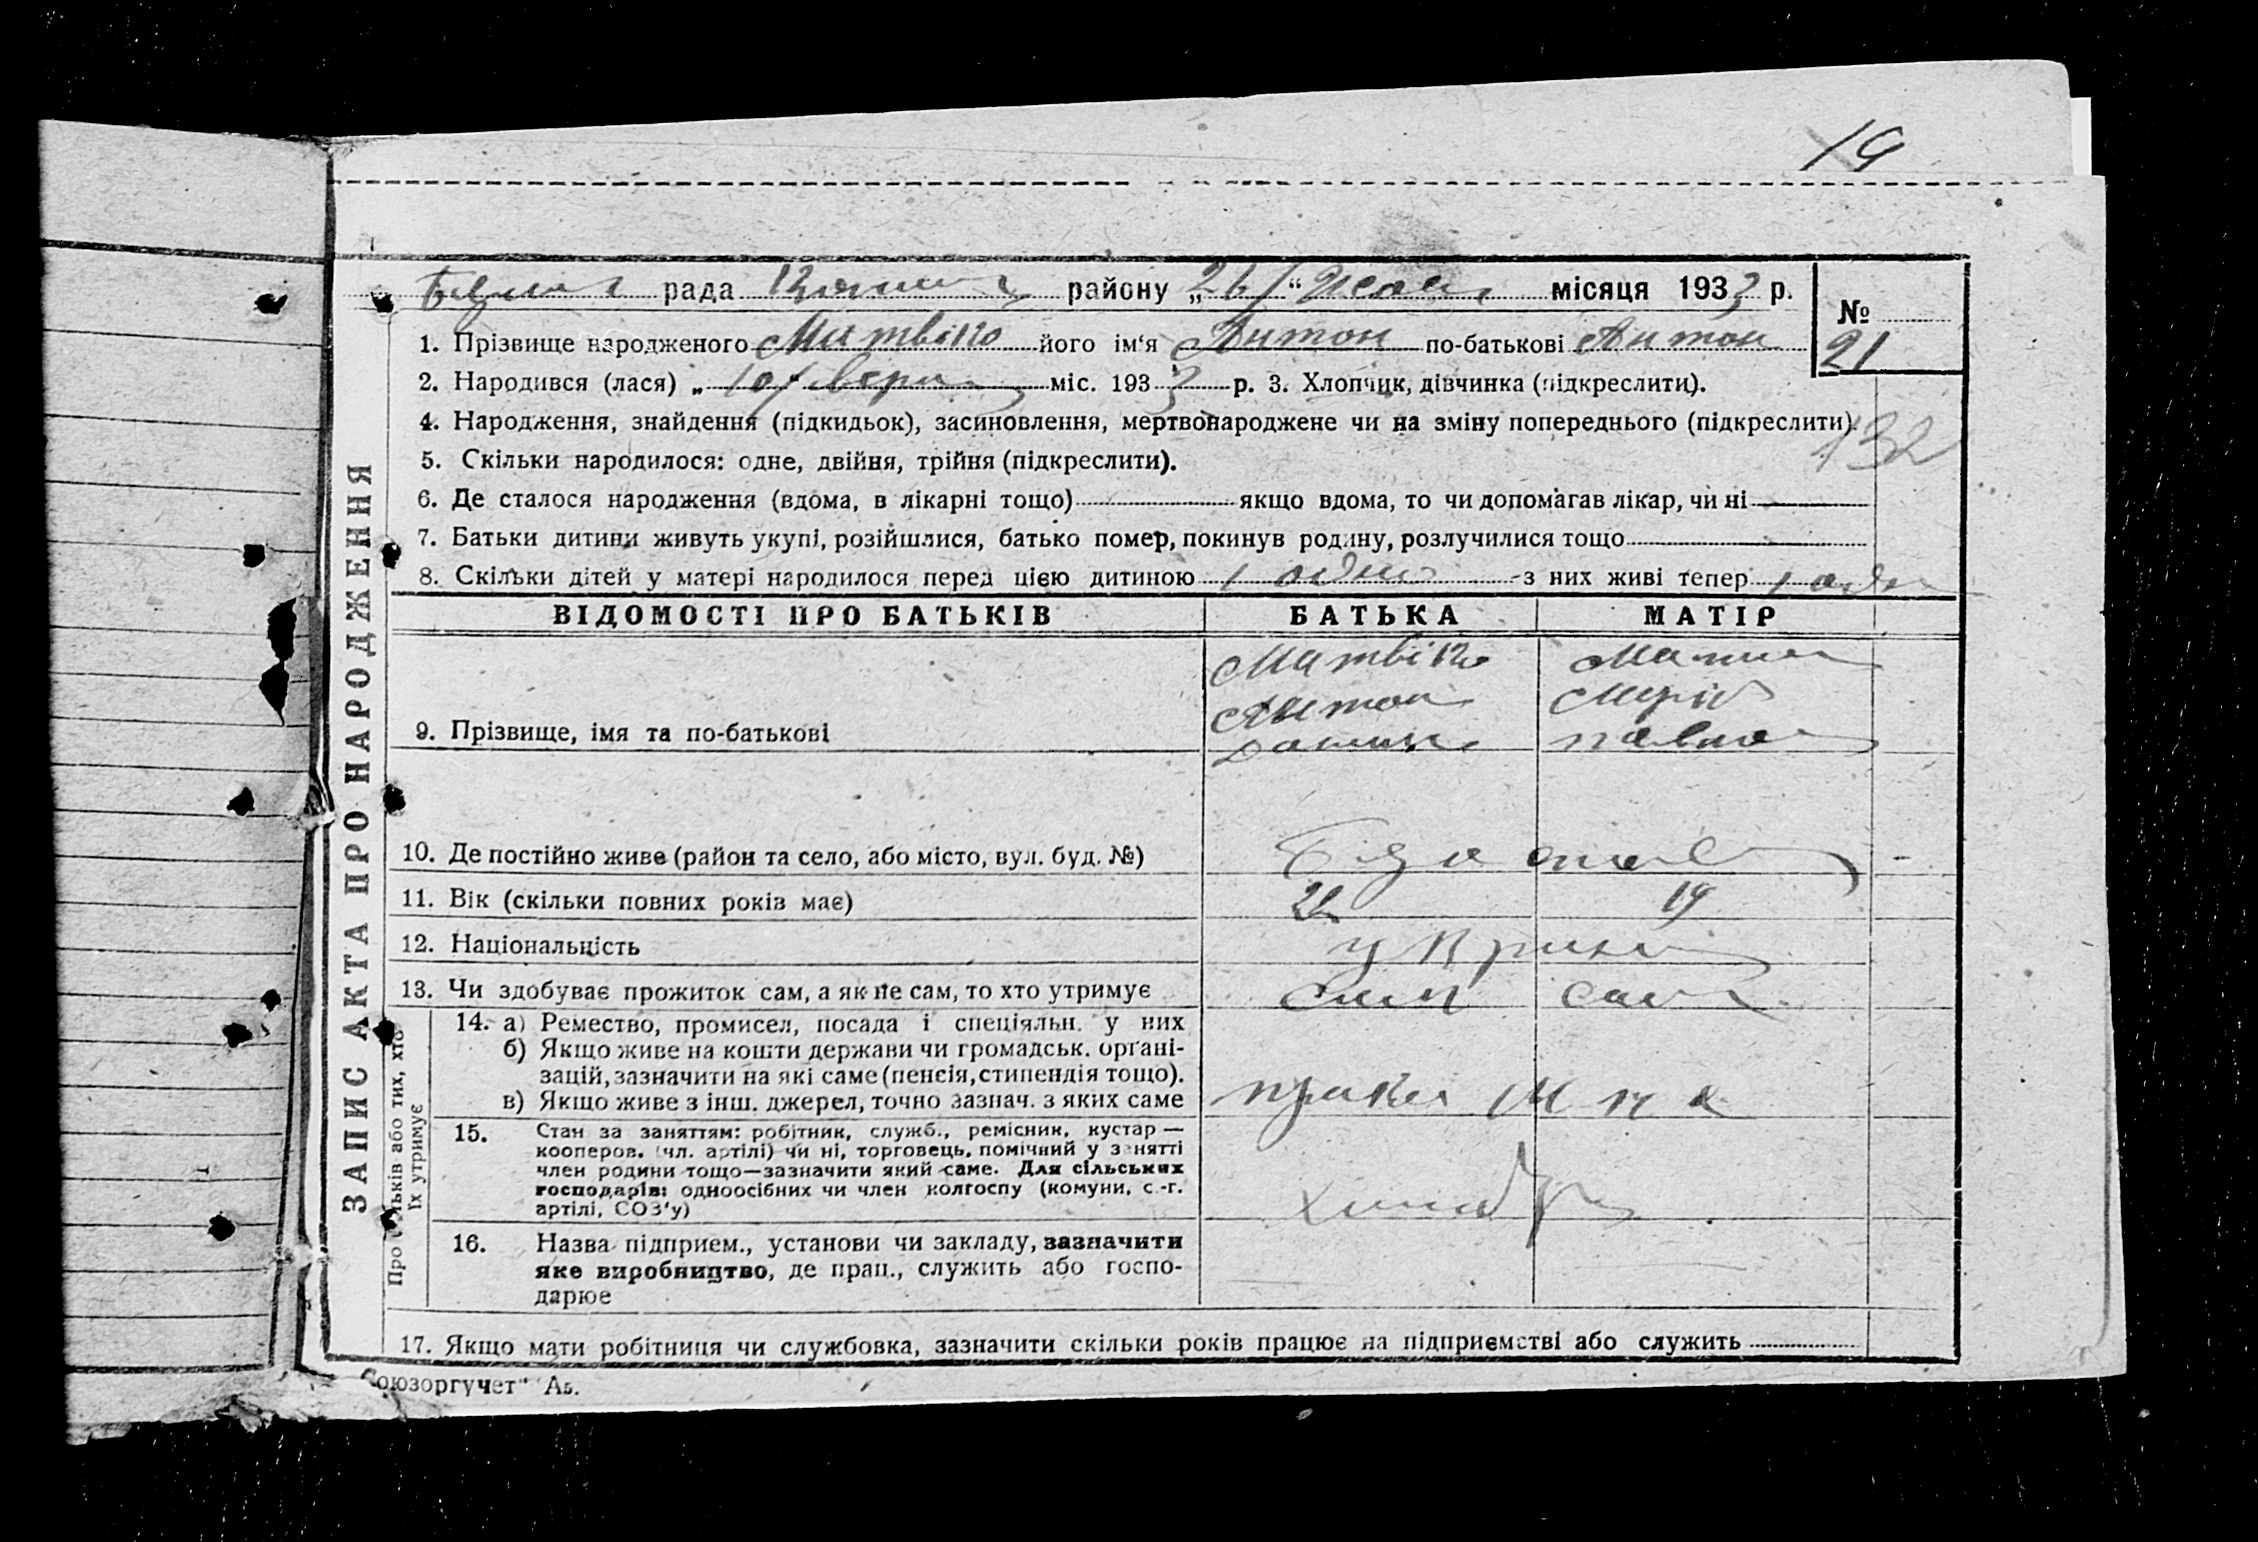 19
рада району „26/“ місяця 1933 р.
№ 21
1. Прізвище народженого Матвієко його ім‘я Антон по-батькові Антон
2. Народився (лася) „ 10/ міс. 1933 р. 3. Хлопчик, дівчинка (підкреслити).
4. Народження, знайдення (підкидьок), засиновлення, мертвонароджене чи на зміну попереднього (підкреслити).
132
5. Скільки народилося: одне, двійня, трійня (підкреслити).
6. Де сталося народження (вдома, в лікарні тощо) якщо вдома, то чи допомагав лікар, чи ні
7. Батьки дитини живуть укупі, розійшлися, батько помер, покинув родину, розлучилися тощо
8. Скільки дітей у матері народилося перед цією дитиною 1 одно з них живі тепер 1 одно
ЗАПИС АКТА ПРО НАРОДЖЕННЯ
ВІДОМОСТІ ПРО БАТЬКІВ БАТЬКА МАТІР
Антон
9. Прізвище, імя та по-батькові Павло
10. Де постійно живе (район та село, або місто, вул. буд. №)
11. Вік (скільки повних років має) 22 19
12. Національність украин
13. Чи здобуває прожиток сам, а як не сам, то хто утримує сам сама
Про батьків або тих, хто
їх утримує
14. а) Ремество, промисел, посада і спеціяльн. у них
б) Якщо живе на кошти держави чи громадськ. органі-
зацій, зазначити на які саме (пенсія, стипендія тощо).
в) Якщо живе з інш. джерел, точно зазнач. з яких саме
15. Стан за заняттям: робітник, служб., ремісник, кустар —
кооперов. (чл. артілі) чи ні, торговець, помічний у занятті
член родини тощо—зазначити який саме. Для сільських
господарів: одноосібних чи член колгоспу (комуни, с.-г.
артілі, СОЗ'у)
16. Назва підприєм., установи чи закладу, зазначити
яке виробництво, де прац., служить або госпо-
дарює
17. Якщо мати робітниця чи службовка, зазначити скільки років працює на підприємстві або служить
„Союзоргучет“